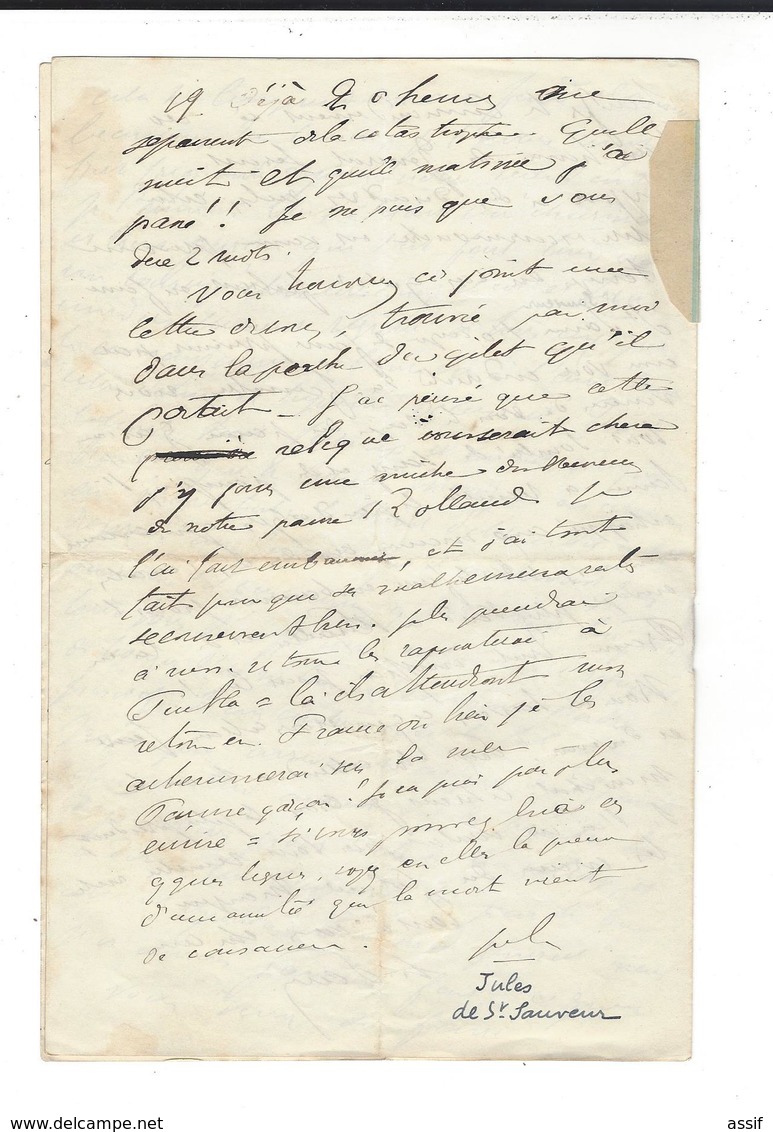 19 Déjà 20 heures me
séparent de la catastrophe. Quelle
nuit et quelle matinée j'ai
passé!! Je ne puis que vous
dire 2 mots.
Vous trouverez ci joint une
lettre de vous, trouvée par moi
dans la poche du gilet qu'il
portait – J'ai pensé que cette
relique vous serait chère
j'y joins une mèche des cheveux
de notre pauvre Rolland je
l'ai fait embaumer, et j'ai tout
fait pour que ses malheureux restes
se conservent bien. Je les prendrai
à mon retour les rapporterai à
Puebla = là ils attendront mon
retour en France ou bien je les
acheminerai vers la mer
Pauvre garçon! Je ne puis pas plus
écrire = Si vous pouvez lire ces
qques lignes, voyez en elles la preuve
d'une amitié que la mort vient
de consacrer.
Jules
Jules
de St. Sauveur
assif